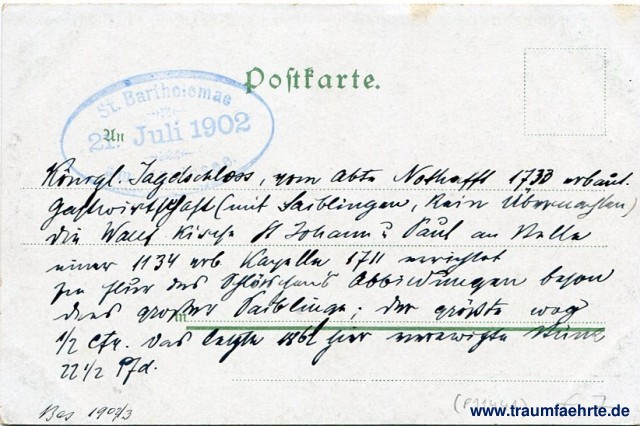 Postkarte.
St. Bartholomae
An
21. Juli 1902
Königl. Jagdschloss, vom Abte Nothafft 1733 erbaut.
Gastwirtschaft (mit Saiblingen, kein Übernachten)
die Wallf Kirche St Johann u Paul an Stelle
einer 1134 erb Kapelle 1711 errichtet
Im Flur des Schlösschens Abbildungen beson
ders großer Saiblinge; der größte wog
1/2 Ctr. Das letzte 1862 hier verewigte
22 1/2 Pfd.
Bes 1902/3
www.traumfaehrte.de